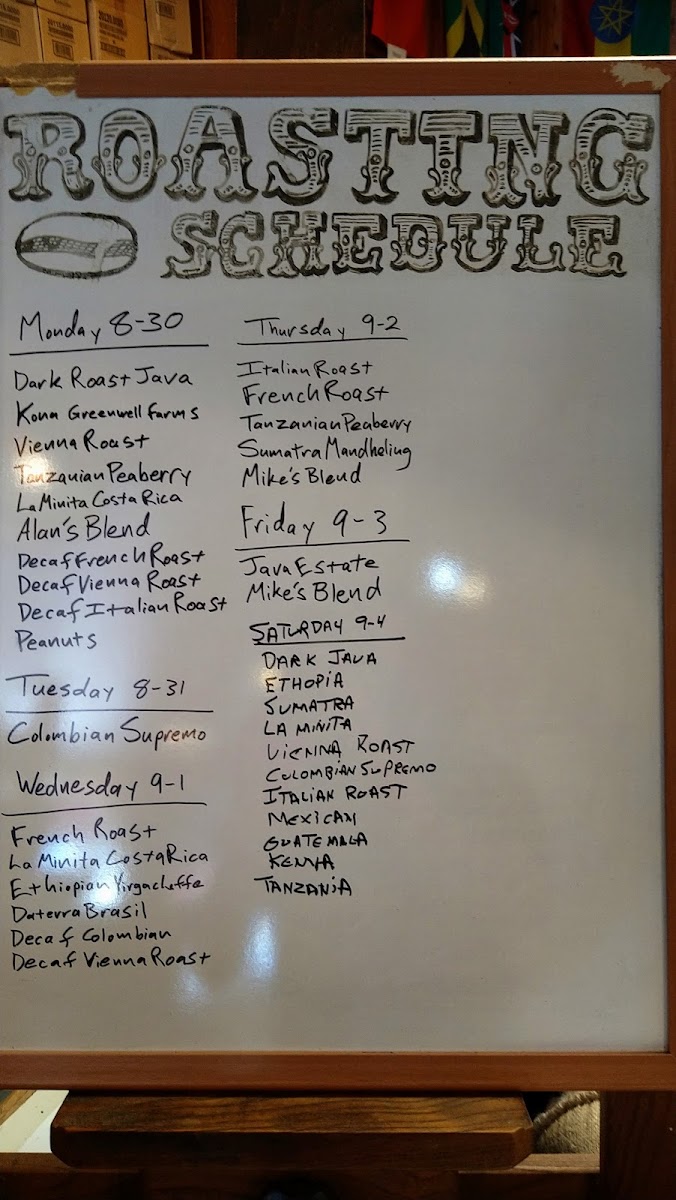 ROASTING
SCHEDULE
Monday 8-30
Dark Roast Java
Kona Greenwell Farms
Vienna Roast
Tanzanian Peaberry
La Minita Costa Rica
Alan's Blend
Decaf French Roast
Decaf Vienna Roast
Decaf Italian Roast
Peanuts
Tuesday 8-31
Colombian Supremo
Wednesday 9-1
French Roast
La Minita Costa Rica
Ethiopian Yirgacheffe
Daterra Brasil
Decaf Colombian
Decaf Vienna Roast
Thursday 9-2
Italian Roast
French Roast
Tanzanian Peaberry
Sumatra Mandheling
Mike's Blend
Friday 9-3
Java Estate
Mike's Blend
SATURDAY 9-4
DARK JAVA
ETHOPIA
SUMATRA
LA MINITA
VIENNA ROAST
COLOMBIAN SUPREMO
ITALIAN ROAST
MEXICAN
GUATEMALA
KENYA
TANZANIA